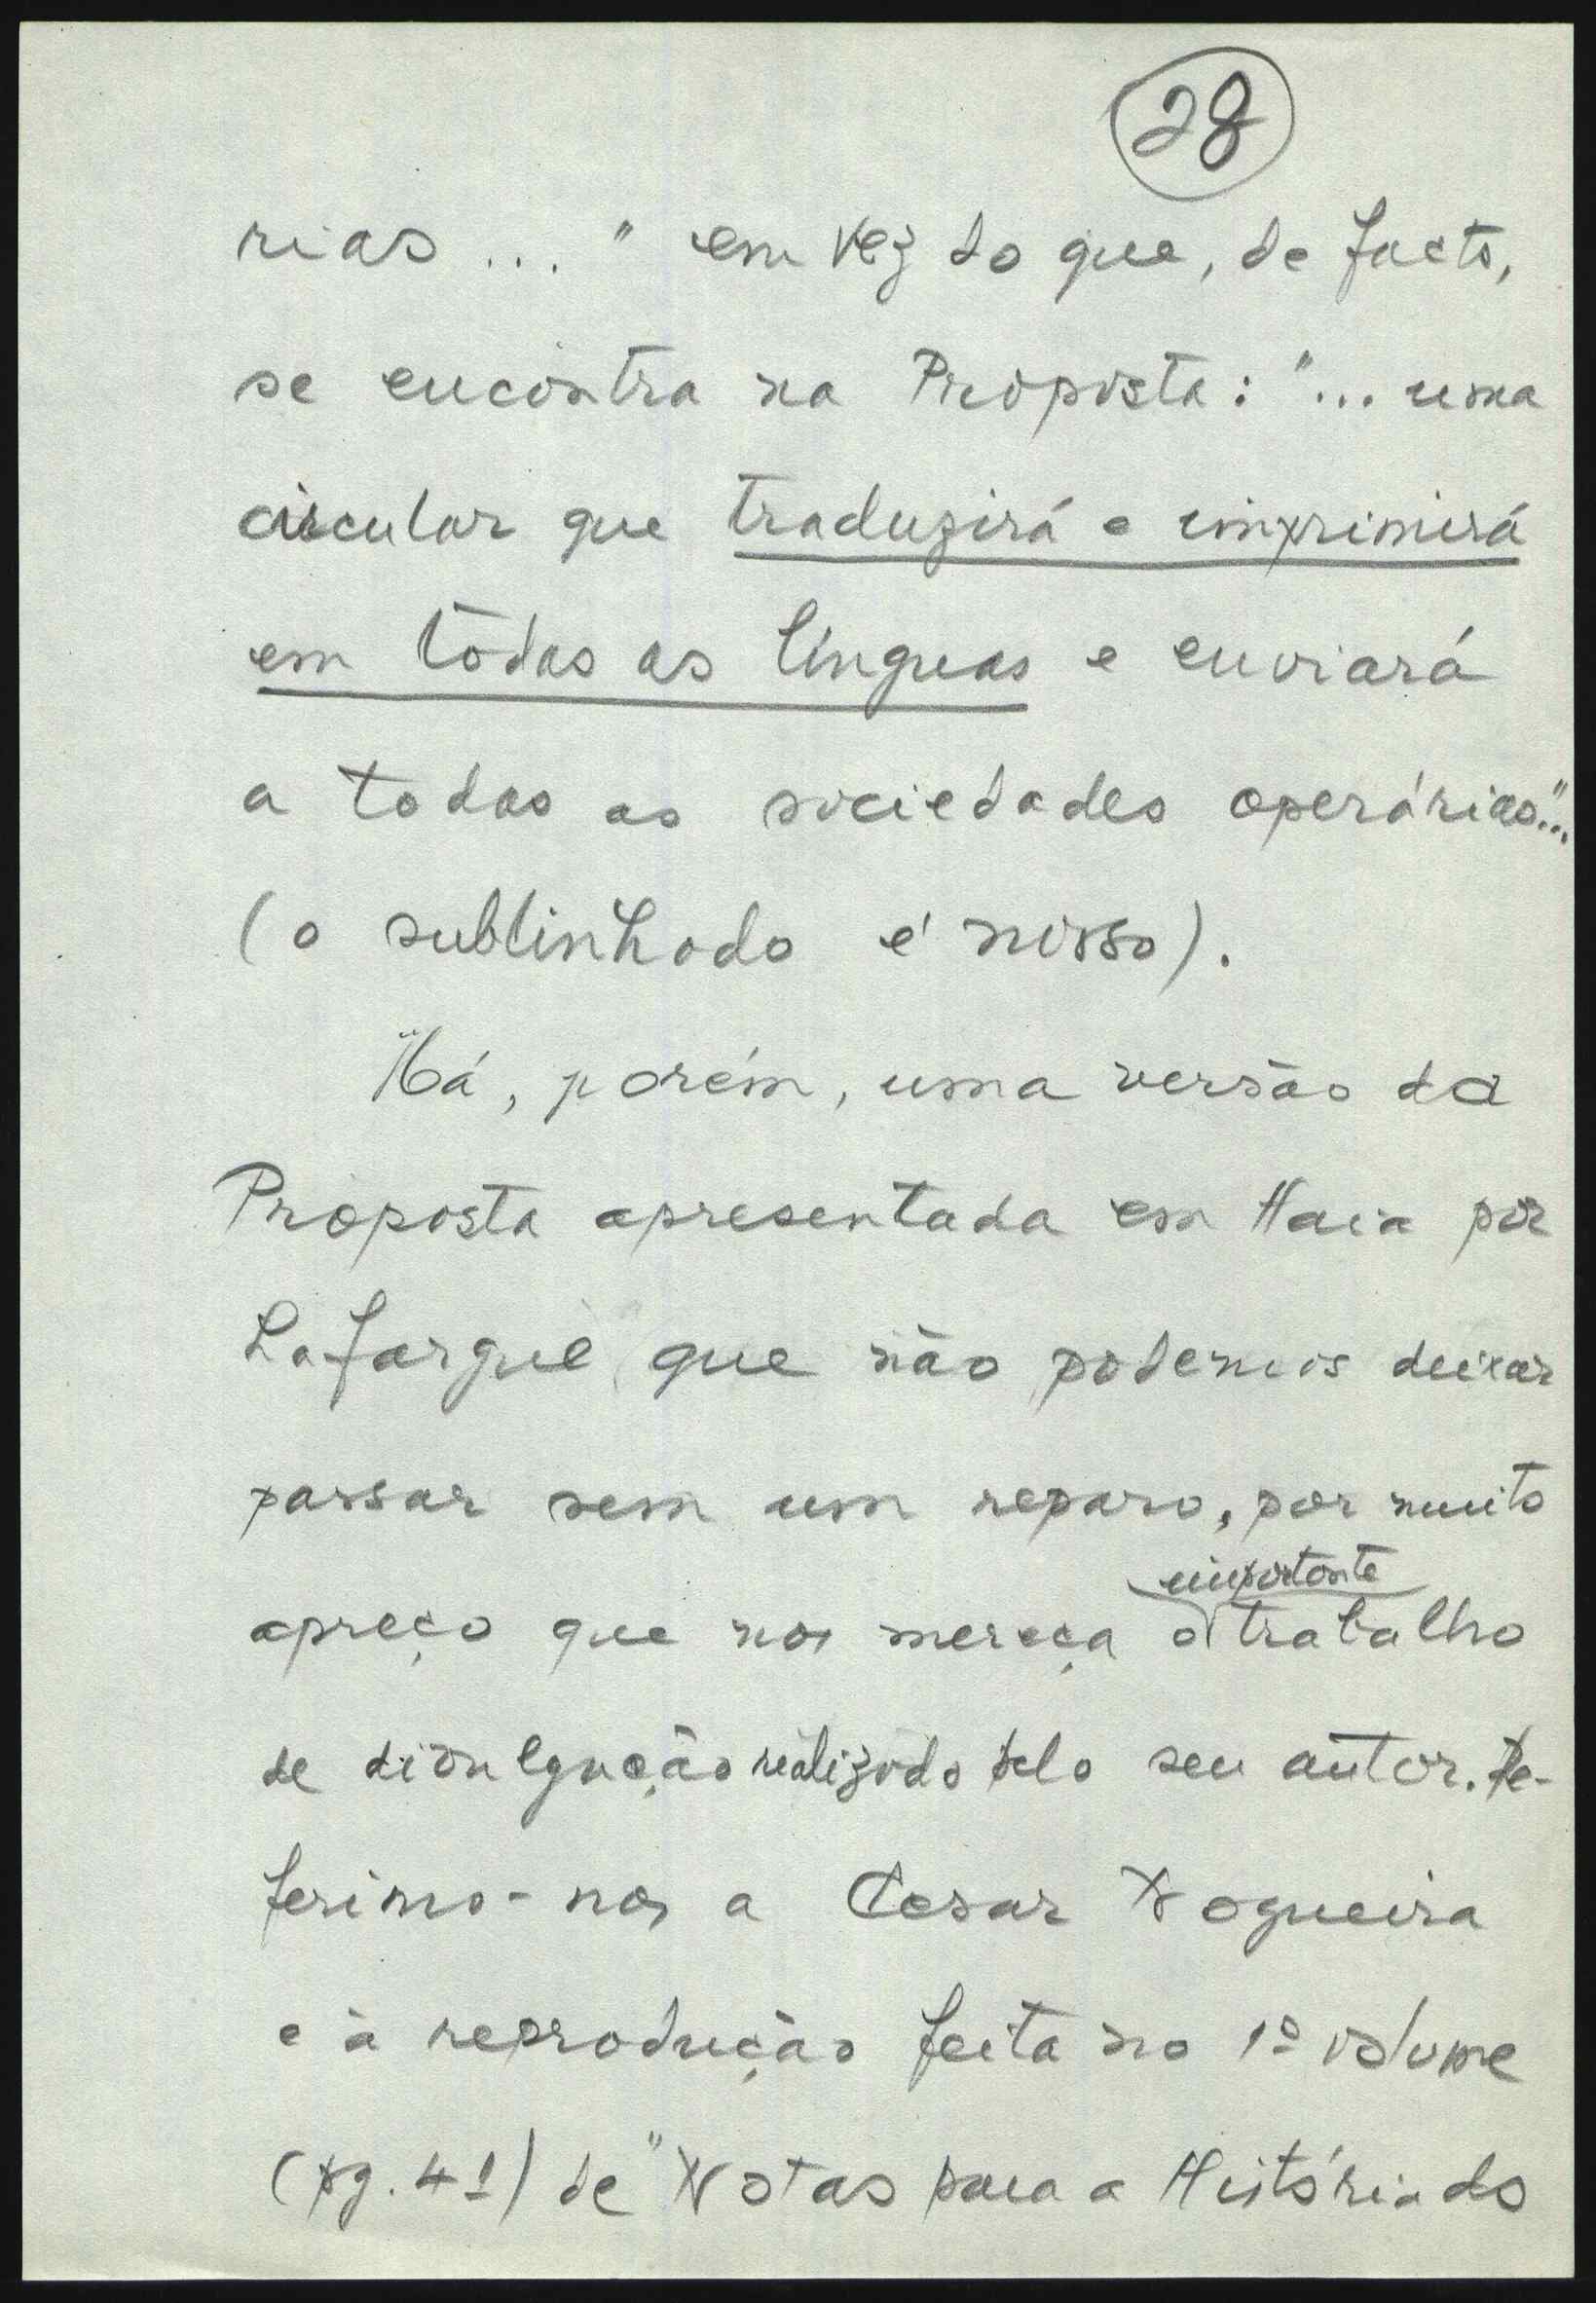 28
rias..." em vez do que, de facto,
se encontra na Proposta: "... uma
circular que traduzirá e imprimirá
em tôdas as línguas e enviará
a todas as sociedades operárias..."
(o sublinhado é nosso).
Há, porém, uma versão da
Proposta apresentada em Haia por
Lafargue que não podemos deixar
passar sem um reparo, por muito
importante
apreço que nos mereça o trabalho
de divulgação realizado pelo seu autor. Re-
ferimo-nos a Cesar Nogueira
e à reprodução feita no 1º volume
(pg. 41) de "Notas para a História do